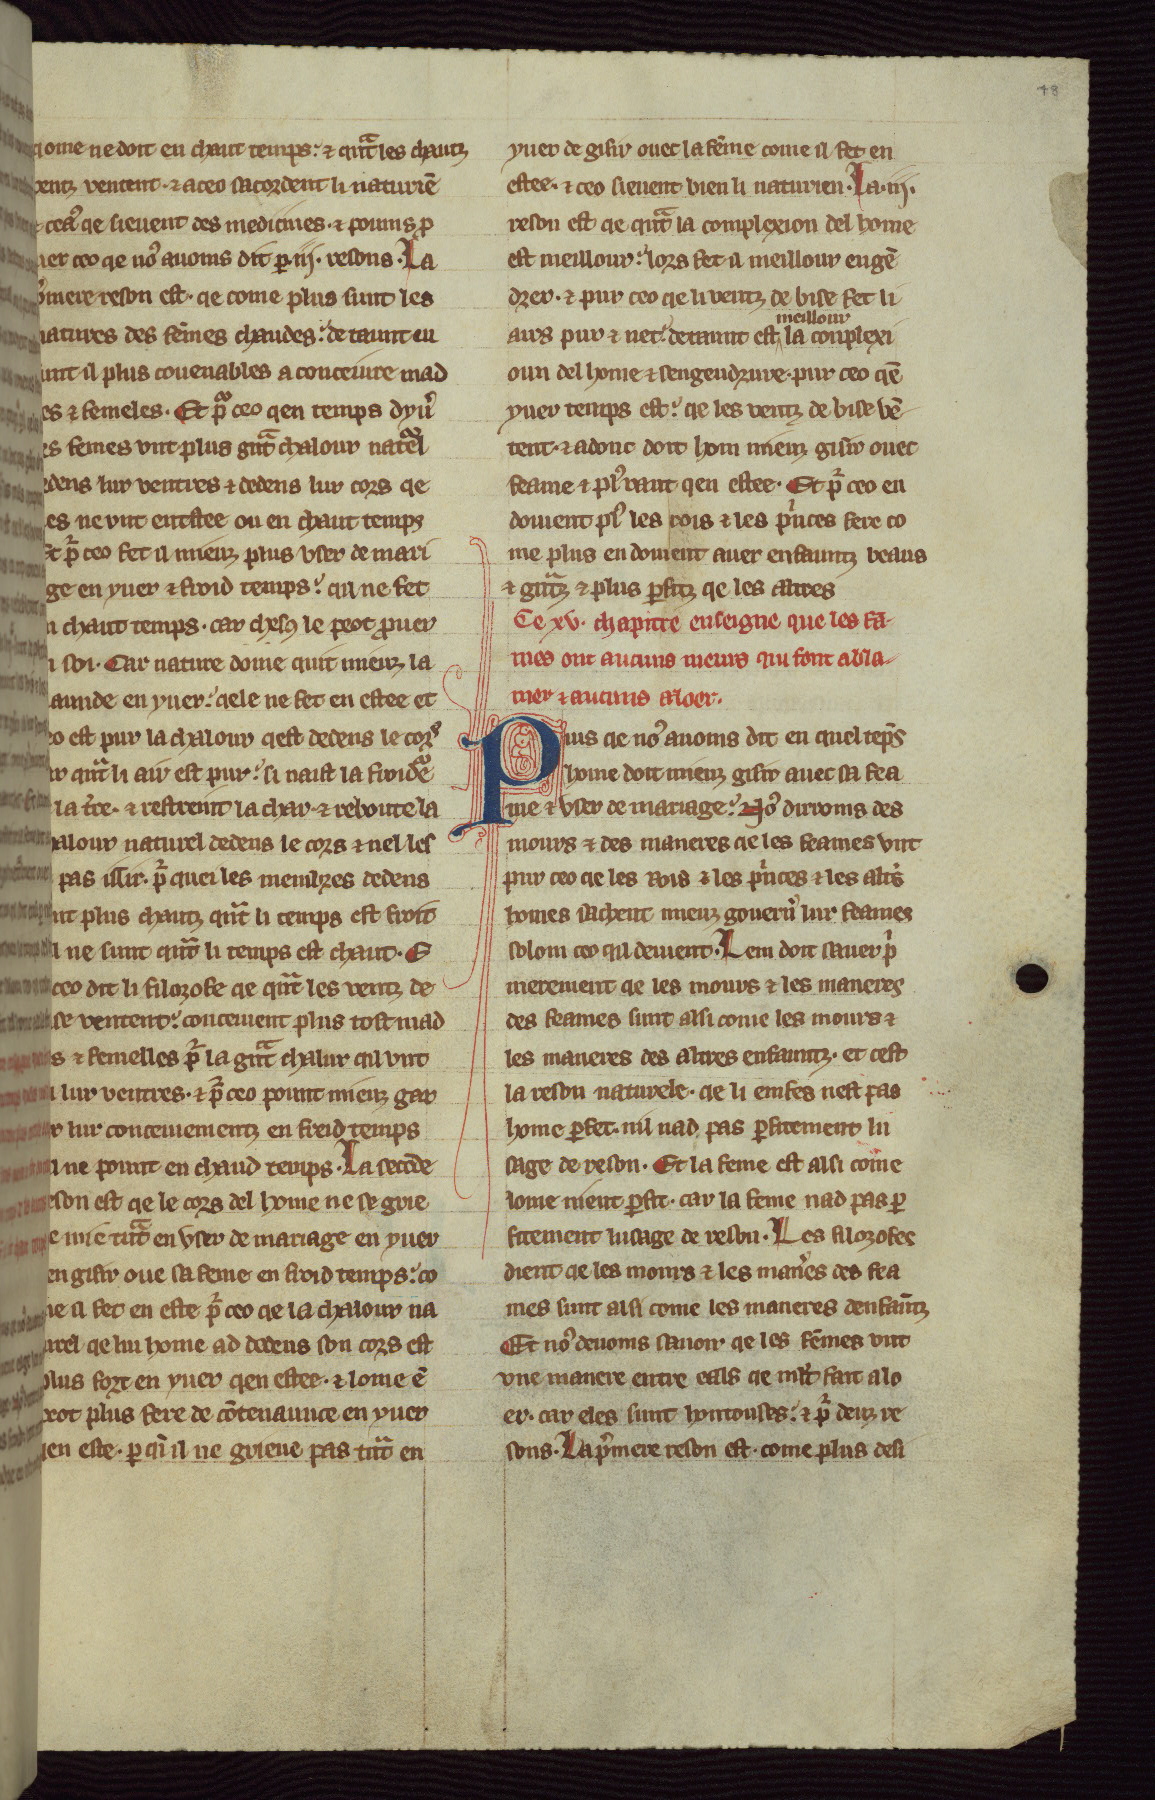 48
lome ne doit en chaut temps. ⁊ qu̅t les chautz
ventz ventent. ⁊ a ceo sacordent li naturie̅
⁊ ceaˢ qe sieuent des medicines. ⁊ poums ꝓ
uer ceo qe noˢ auoms dit ꝑ .iij. resons. La
pͥmere reson est. qe come plus sunt les
natures des fe̅mes chaudes. de taunt en
sunt il plus couenables a conceiure mad
les ⁊ femeles. Et pͬ ceo qen temps dyu̅
les femes unt plus gͣnt chalour natᵉl
dedens lur ventres ⁊ dedens lur cors qe
les ne unt en estee ou en chaut temps
Et pͬ ceo fet il mieuz plus user de mari
age en yuer ⁊ froid temps. qu ne fet
en chaut temps. car chescꝰ le peot ꝓuer
en soi. Car nature dome quit mieuz la
uiaunde en yuer. qele ne fet en estee et
ceo est pur la chalour qest dedens le corˢ
car qu̅t li air est pur. si naist la froidᵉ
la tͬre. ⁊ restreint la char. ⁊ reboute la
chalour naturel dedens le cors ⁊ nel les
pas issir. pͬ quei les membres dedens
sunt plus chautz qu̅t li temps est froit
il ne sunt qu̅t li temps est chaut. E
ceo dit li filozofe qe qu̅t les ventz de
bise ventent. conceiuent plus tost mad
les ⁊ femelles pͬ la gͣnt chalur qil unt
en lur ventres. ⁊ pͬ ceo pount mieuz gar
der lur conceiuementz en freid temps
il ne pount en chaud temps. La secu̅de
reson est qe le cors del home ne se grie
ue mie tau̅t en user de mariage en yuer
en gisir oue sa feme en froid temps. co
me il fet en este pͬ ceo qe la chalour na
turel qe lui home ad dedens son cors est
plus fort en yuer qen estee. ⁊ lome e̅
peot plus fere de co̅tenaunce en yuer
qen este. ꝑ qi il ne grieue pas tau̅t en
yuer de gisir ouec la fe̅me come il fet en
estee. ⁊ ceo sieuent bien li naturien. La .iij.
reson est qe qu̅t la complexion del home
est meillour. lors fet il meillour enge̅
drer. ⁊ pur ceo qe li ventz de bise fet li
airs pur ⁊ net. detaunt est meillour la conplexi
oun del home ⁊ sengendrure. pur ceo qe̅
yuer temps est. qe les ventz de bise ve̅
tent. ⁊ adonc doit hom mieuz gisir ouec
feame ⁊ plˢ vaut qen estee. Et pͬ ceo en
doiuent plˢ les rois ⁊ les pͥnces fere co
me plus en doiuent auer enfauntz beaus
⁊ gͣntz ⁊ plus ꝑfitz qe les altres
Ce xv. chapitre enseigne que les fa-
mes ont aucuns meurs qui font a bla-
mer ⁊ aucuns aloer.
Puis qe noˢ auoms dit en quel te̅ps
home doit mieuz gisir auec sa fea
me ⁊ user de mariage. Noˢ dirroms des
mours ⁊ des maneres qe les feames unt
pur ceo qe les rois ⁊ les pͥnces ⁊ les altͬs
homes sachent mieuz gouerͫ lur feames
solom ceo qil deiuent. Lem doit sauer pͥ
merement qe les mours ⁊ les maneres
des feames sunt alsi come les mours ⁊
les maneres des altres enfauntz. et cest
la reson naturele. qe li emfes nest pas
home ꝑfet. nil nad pas ꝑfitement lu
sage de reson. Et la feme est alsi come
lome nient ꝑfit. car la feme nad pas ꝑ
fitement lusage de reson. Les filozofes
dient qe les mours ⁊ les manͬes des fea
mes sunt alsi come les maneres denfau̅tz
Et noˢ deuoms sauoir qe les fe̅mes unt
vne manere entre eals qe mlt̅ fait a lo
er. car eles sunt hontouses. ⁊ pͬ deuz re
sons. La pͥmere reson est. come plus desi